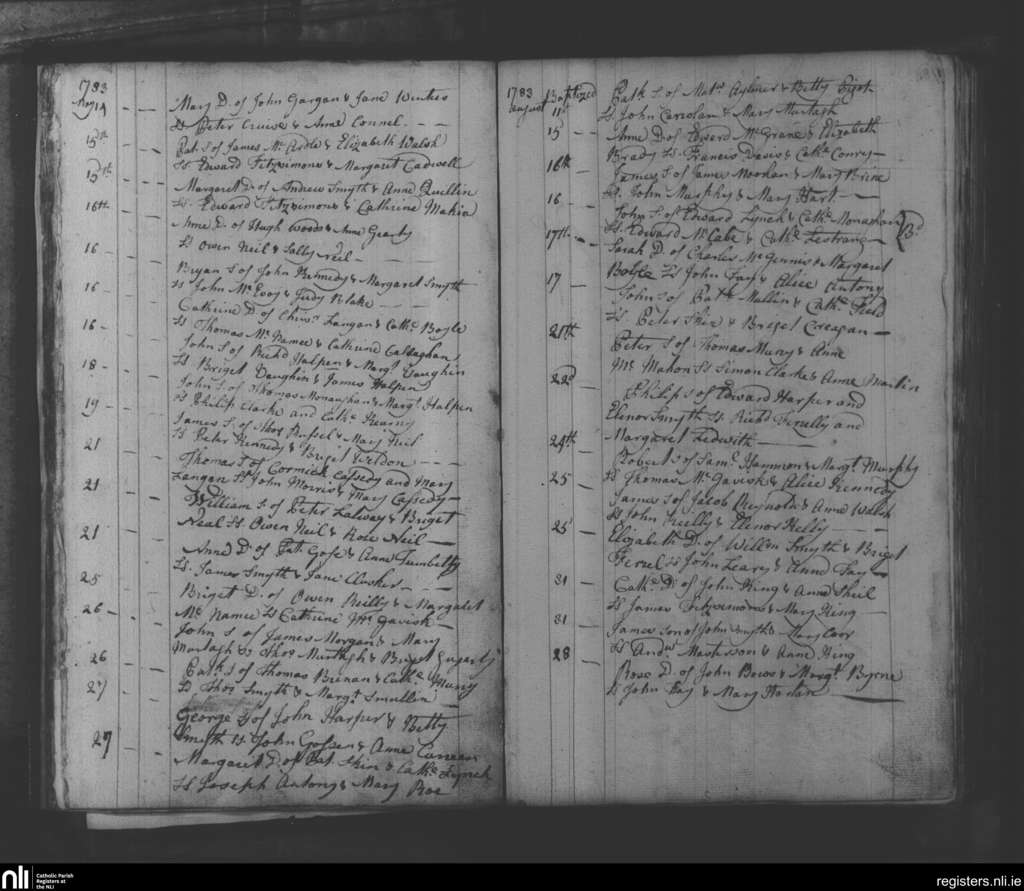 1783
Mary D. of John Gargan & Jane Winters
14 - - Ss Peter Cruise & Anne Connel - - -
15th Pat. S of James McArdle & Elizabeth Walsh
- - - Ss Edward Fitzsimons & Margaret Cadwell
15th - - - Margaret D. of Andrew Smyth & Anne
16th Ss. Edward Fitzsimons & Cathrine
Anne D. of Hugh Woods & Anne Gearty
16 - - Ss Owen Neil & Sally Neil - -
Bryan S of John Kennedy & Margaret Smyth
16 - - Ss John McEvoy & Judy Blake - -
Cathrine D of Langan & Cathe. Boyle
16 - Ss Thomas McNamee & Cathrine Callaghan
John S of Richd Halpen & Margt. Daughin
18 - - Ss Briget Daughin & James Halpen
John S. of Thomas Monaghan & Margt. Halpen
19 - - Ss Philip Clarke and Cathe. Kearny
James S. of Thos Russel & Mary Neil
21 - Ss Peter Kennedy & Briget Weldon - - -
Thomas S of Cormick Cassedy and Mary
21 - - Langan Ss John Morris & Mary Cassedy -
William S. of Peter & Briget
21 - - Neal Ss. Owen Neil & Rose Neil -
Anne D. of Pat. & Anne
25 - - Ss. James Smyth & Jane
Briget D. of Owen Reilly & Margaret
26 - McNamee Ss Cathrine McGavisk -
John S of James Morgan & Mary
26 - Murtagh Ss Thos Murtagh & Briget
Cath. of Thomas Brenan & Cathe. Murry
27 - Ss Thos Smyth & Margt. Smullen -
George S of John Harper & Betty
27 - - Smyth Ss John & Anne
Margaret D. of Pat. Skin & Cathe. Lynch
Ss Joseph Antony & Mary Roe
1783 Baptized Path. S of Matw. Aylmer & Betty
August 11th Ss. John Carolan & Mary Murtagh
15 - Anne D. of Edward McGrane & Elizabeth
Brady Ss. Francis Davis & Cathe. Conry -
16th - James S of James Moohan & Mary Brine
16 - Ss. John Murphy & Mary Hart -
John S. of Edward Lynch & Cathe. Monaghan
17th - Ss. Edward McCabe & Cathe. Lestrange
Sarah D. of Charles McGennis & Margaret
17 - Boyle Ss John Fay & Alice Antony
John S of Path. Mullen & Cathe. Field
21th Ss. Peter Skin & Briget Creagan -
Peter S of Thomas Murry & Anne
22d McMahon Ss Simon Clarke & Anne Martin
Philip S of Edward Harper and
Elenor Smyth Ss. Richd Fenelly and
24th Margaret Ledwith -
Robert S of Saml. Hammon & Margt. Murphy
25 - Ss Thomas McGavisk & Alice Kennedy
James S of Jacob Reynolds & Anne Walsh
25 - Ss John Kelly & Elenor Kelly -
Elizabeth D. of Willm Smyth & Briget
Ss John Leary & Anne Fay -
31 - Cathe. D. of John King & Anne Sheil
Ss James Fitzsimons & Mary King
31 - James son of John Smyth & Mary Carr
28 - Ss Andw. Masterson & Anne King
Rose D. of John & Margt. Byrne
Ss John Fay & Mary
nli Catholic Parish
Registers at
the NLI
registers.nli.ie